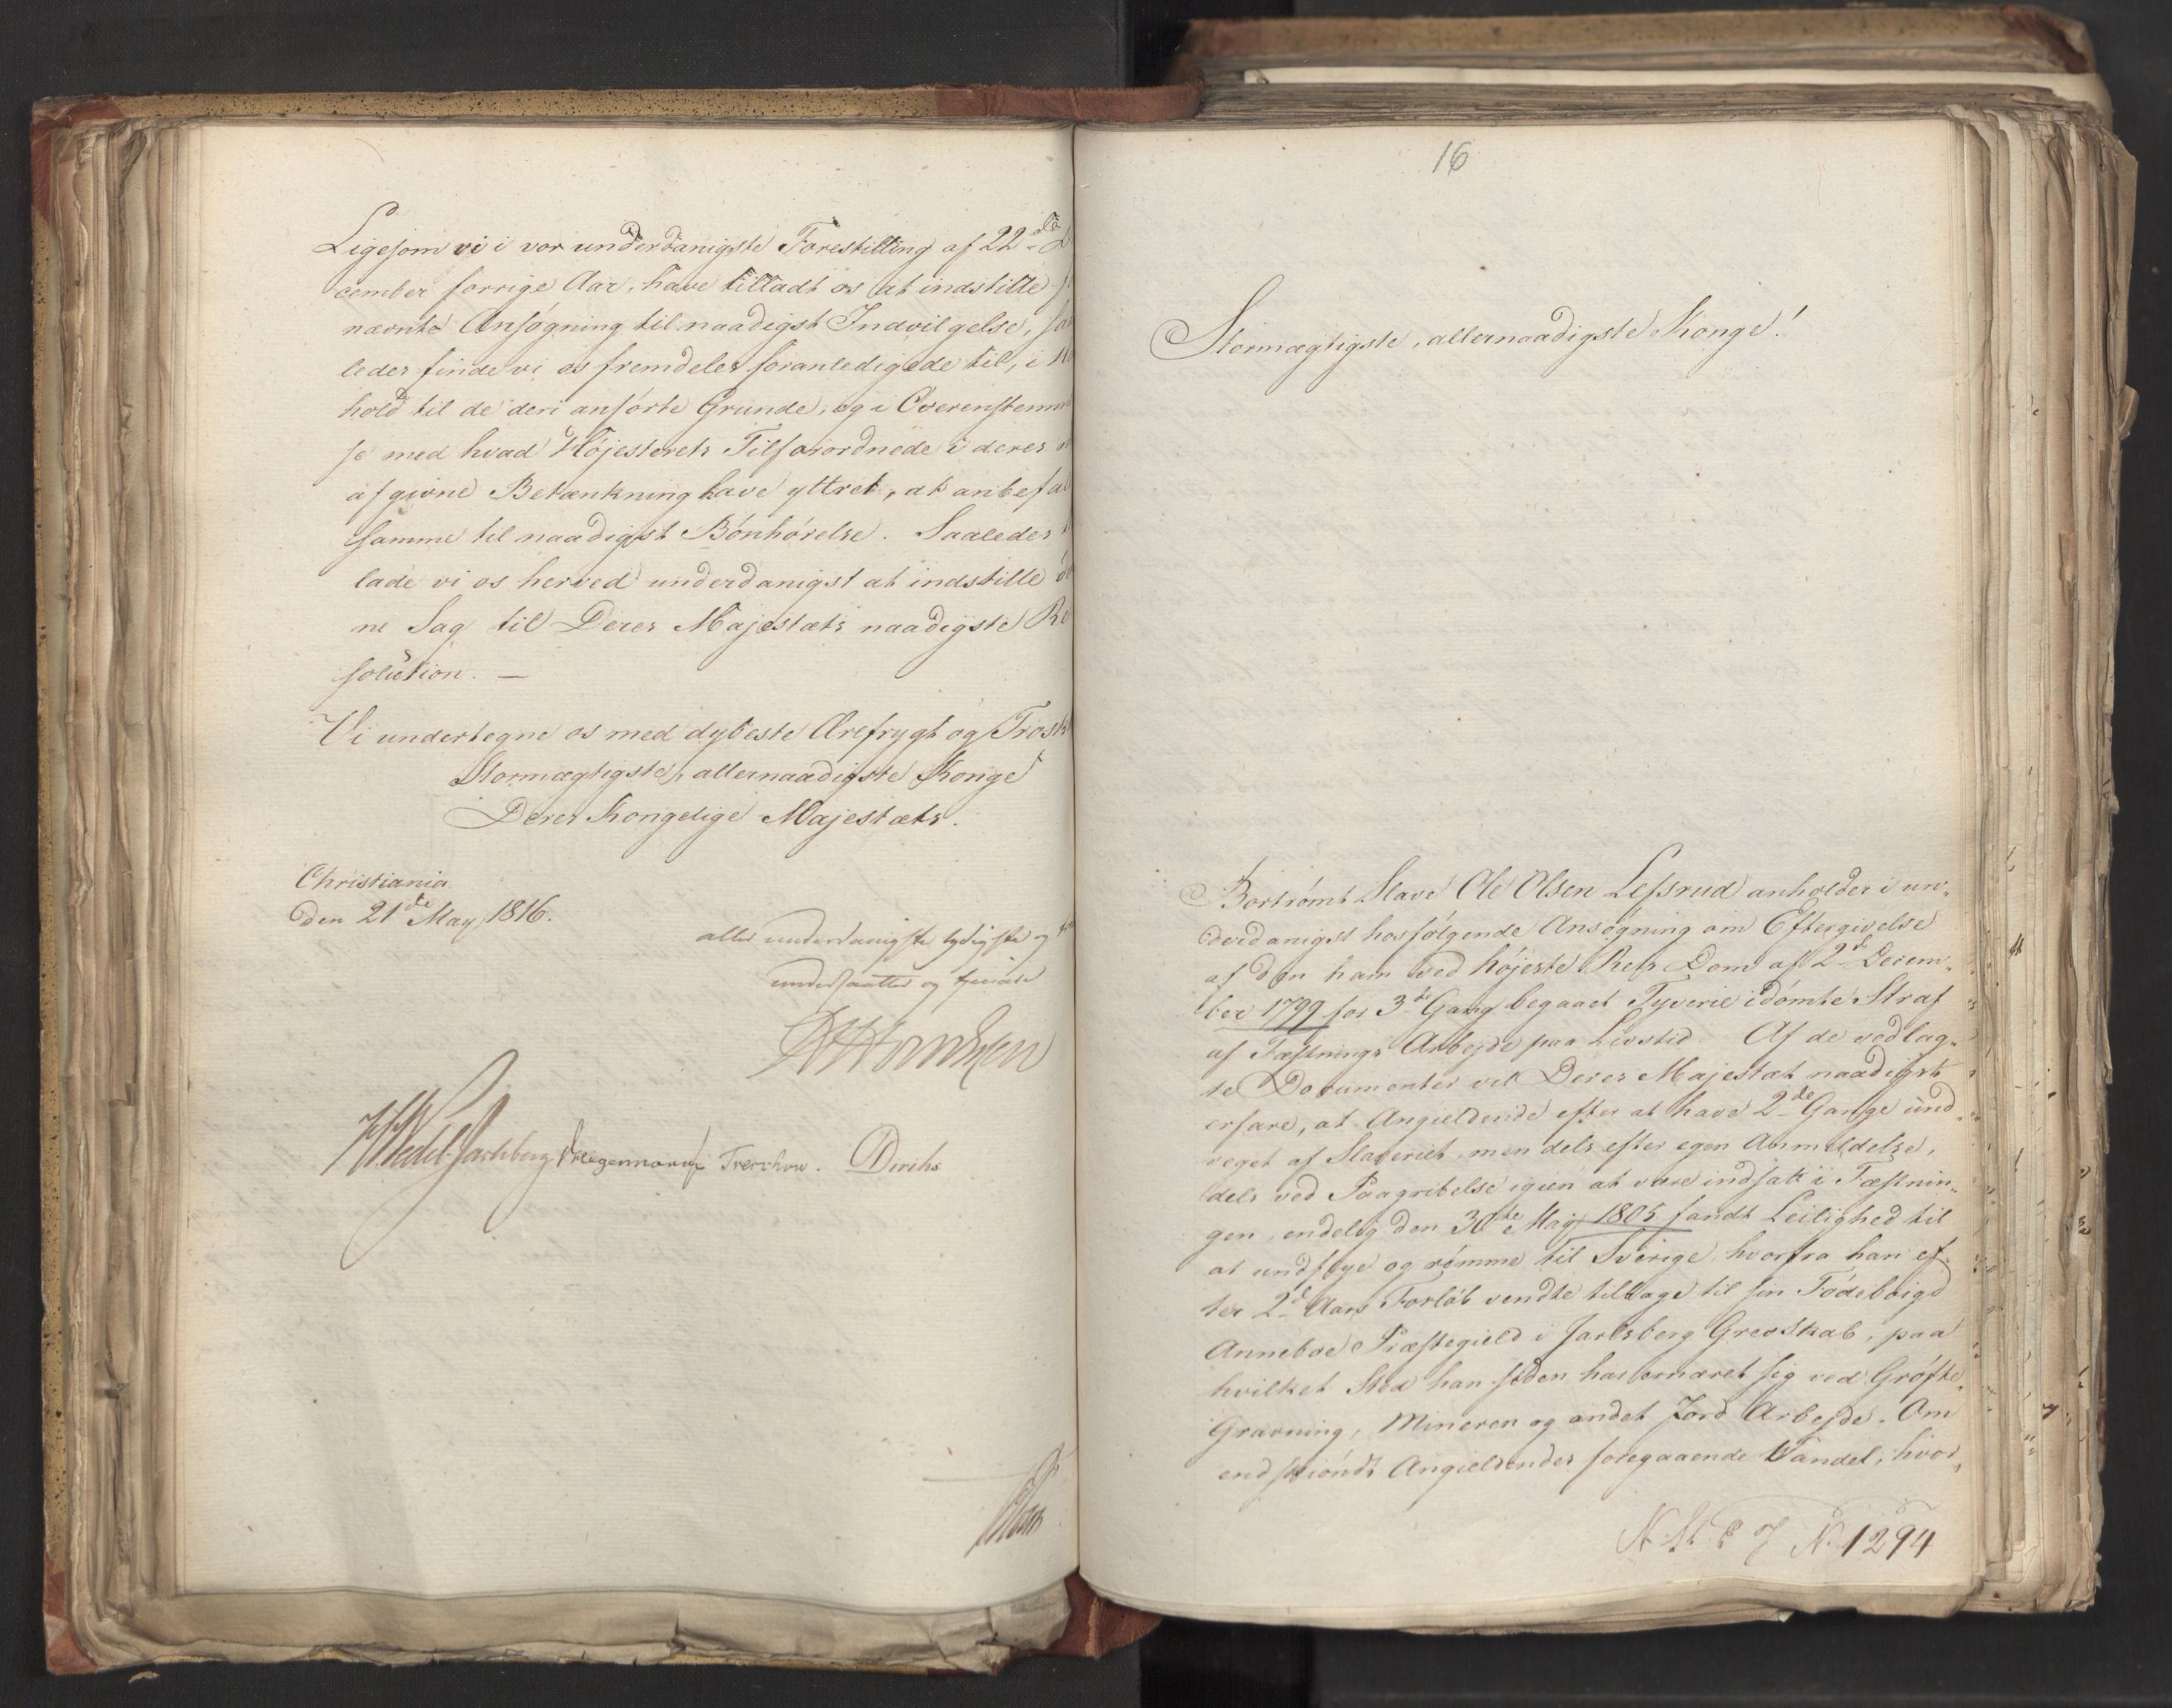 Ligesom vi i vor underdanigste Forestilling af 22de D
cember forrige Aar, have tilladt os at indstille
nævnte Ansøgning til naadigst Indvilgelse, saa
ledes finde vi os fremdeles foranledigede til, i H
hold til de deri anførte Grunde, og i Overenstemm
se med hvad Højesterets Tilforordnede i deres
afgivne Betænkning have yttret, at anbefal
samme til naadigst Bønhørelse. Saaledes
lade vi os herved underdanigst at indstille de
ne Sag til Deres Majestæts naadigste Re
solution. —
Vi undertegne os med dybeste Ærefrygt og Trosk
Stormægtigste, allernaadigste Konge
Deres Kongelige Majestæts.
Christiania
den 21de May 1816.
allerunderdanigste lydigste og
undersaatter og tjenere
HWedel Jarlsberg Treschow. Diriks
16
Stormægtigste, allernaadigste Konge!
Bortrømt Slave Ole Olsen Lefsrud anholder i un-
derdanigst hosfølgende Ansøgning om Eftergivelse
af den ham ved højeste Rets Dom af 2d Decem-
ber 1799 for 3de Gang begaaet Tyverie idømte Straf
af Fæstnings Arbejde paa Livstid. Af de vedlag-
te Documenter vil Deres Majestæt naadigst
erfare, at Angieldende efter at have 2de Gange und-
veget af Slaveriet, men dels efter egen Anmeldelse,
dels ved Paagribelse igien at være indsatt i Fæstnin-
gen, endelig den 30te Maj 1805 fandt Leilighed til
at undflye og rømme til Sverige, hvorfra han ef-
ter 2de Aars Forløb vendte tilbage til sin Fødebøigd
Anneboe Præstegield i Jarlsberg Grevskab, paa
hvilket Sted han siden har ernæret sig ved Grøfte-
Gravning, Mineren og andet Jord Arbejde. Om
endskiøndt Angieldendes foregaaende Vandel, hvor-
N. 1294